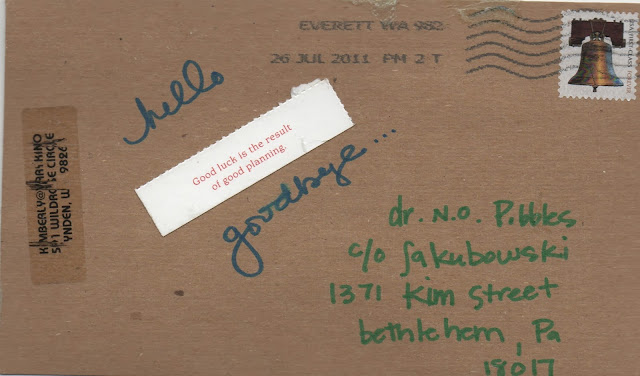 EVERETT WA 982
26 JUL 2011 PM 2 T
hello
Good luck is the result
of good planning.
goodbye...
KIMBERLY@
CIRCLE
YNDEN, W 982
dr. N.O. Pibbles
c/o Jakubowski
1371 Kim Street
bethlehem, Pa
18017